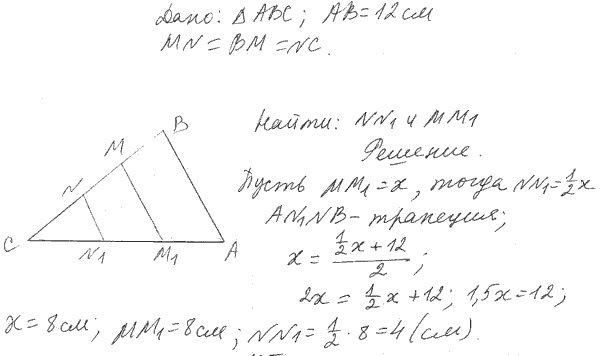 Дано: Δ ABC; AB = 12 см
MN = BM = NC.
Найти: NN₁ и MM₁
Решение.
Пусть MM₁ = x, тогда NN₁ = 1/2 x
AN₁NB – трапеция;
x = (1/2 x + 12)/2;
2x = 1/2 x + 12; 1,5x = 12;
x = 8 см; MM₁ = 8 см; NN₁ = 1/2 · 8 = 4 (см).
B
M
N
C
N₁
M₁
A